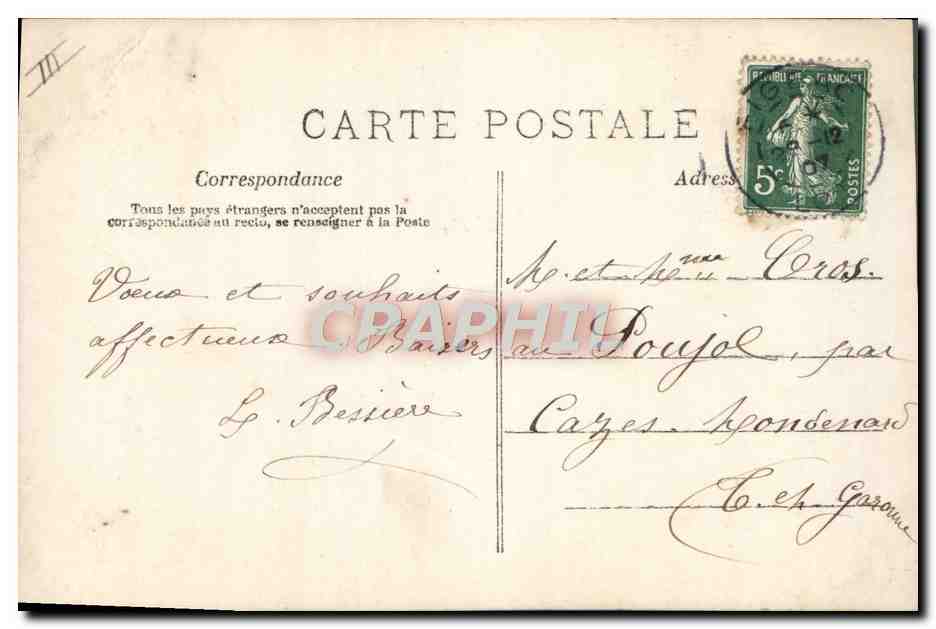 III
CARTE POSTALE
REPUBLIQUE FRANÇAISE
5c
POSTES
12
07
Correspondance
Adress
Tous les pays étrangers n'acceptent pas la
correspondance au recto, se renseigner à la Poste
Voeux et souhaits
affectueux. Baisers
L. Bessière
M. et Mme Cros.
au Poujol, par
Cazes-Mondenard
T. et Garonne
CPAPHIL